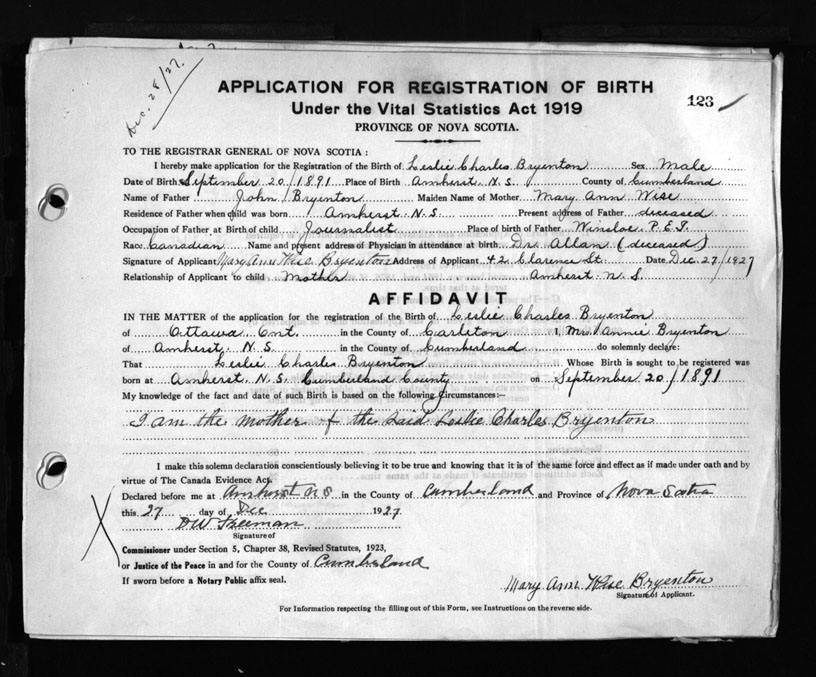 Dec. 28/27.
APPLICATION FOR REGISTRATION OF BIRTH
Under the Vital Statistics Act 1919
123
PROVINCE OF NOVA SCOTIA.
TO THE REGISTRAR GENERAL OF NOVA SCOTIA :
I hereby make application for the Registration of the Birth of Leslie Charles Bryenton Sex Male
Date of Birth September 20/1891 Place of Birth Amherst, N.S. County of Cumberland
Name of Father John Bryenton Maiden Name of Mother Mary Ann Wise
Residence of Father when child was born Amherst N.S. Present address of Father deceased
Occupation of Father at Birth of child Journalist Place of birth of Father Winsloe, P.E.I.
Race Canadian Name and present address of Physician in attendance at birth Dr. Allan (deceased)
Signature of Applicant Mary Ann Wise Bryenton Address of Applicant 42 Clarence St. Date Dec. 27/1927
Relationship of Applicant to child Mother Amherst N.S.
AFFIDAVIT
IN THE MATTER of the application for the registration of the Birth of Leslie Charles Bryenton
of Ottawa Ont. in the County of Carleton I, Mrs Annie Bryenton
of Amherst, N.S. in the County of Cumberland do solemnly declare:
That Leslie Charles Bryenton Whose Birth is sought to be registered was
born at Amherst, N.S. Cumberland County on September 20/1891
My knowledge of the fact and date of such Birth is based on the following Circumstances:—
I am the mother of the said Leslie Charles Bryenton
I make this solemn declaration conscientiously believing it to be true and knowing that it is of the same force and effect as if made under oath and by
virtue of The Canada Evidence Act.
Declared before me at Amherst N S in the County of Cumberland and Province of Nova Scotia
this 27 day of Dec 1927
Signature of
Commissioner under Section 5, Chapter 38, Revised Statutes, 1923,
or Justice of the Peace in and for the County of Cumberland
If sworn before a Notary Public affix seal.
Mary Ann Wise Bryenton
Signature of Applicant.
For Information respecting the filling out of this Form, see Instructions on the reverse side.